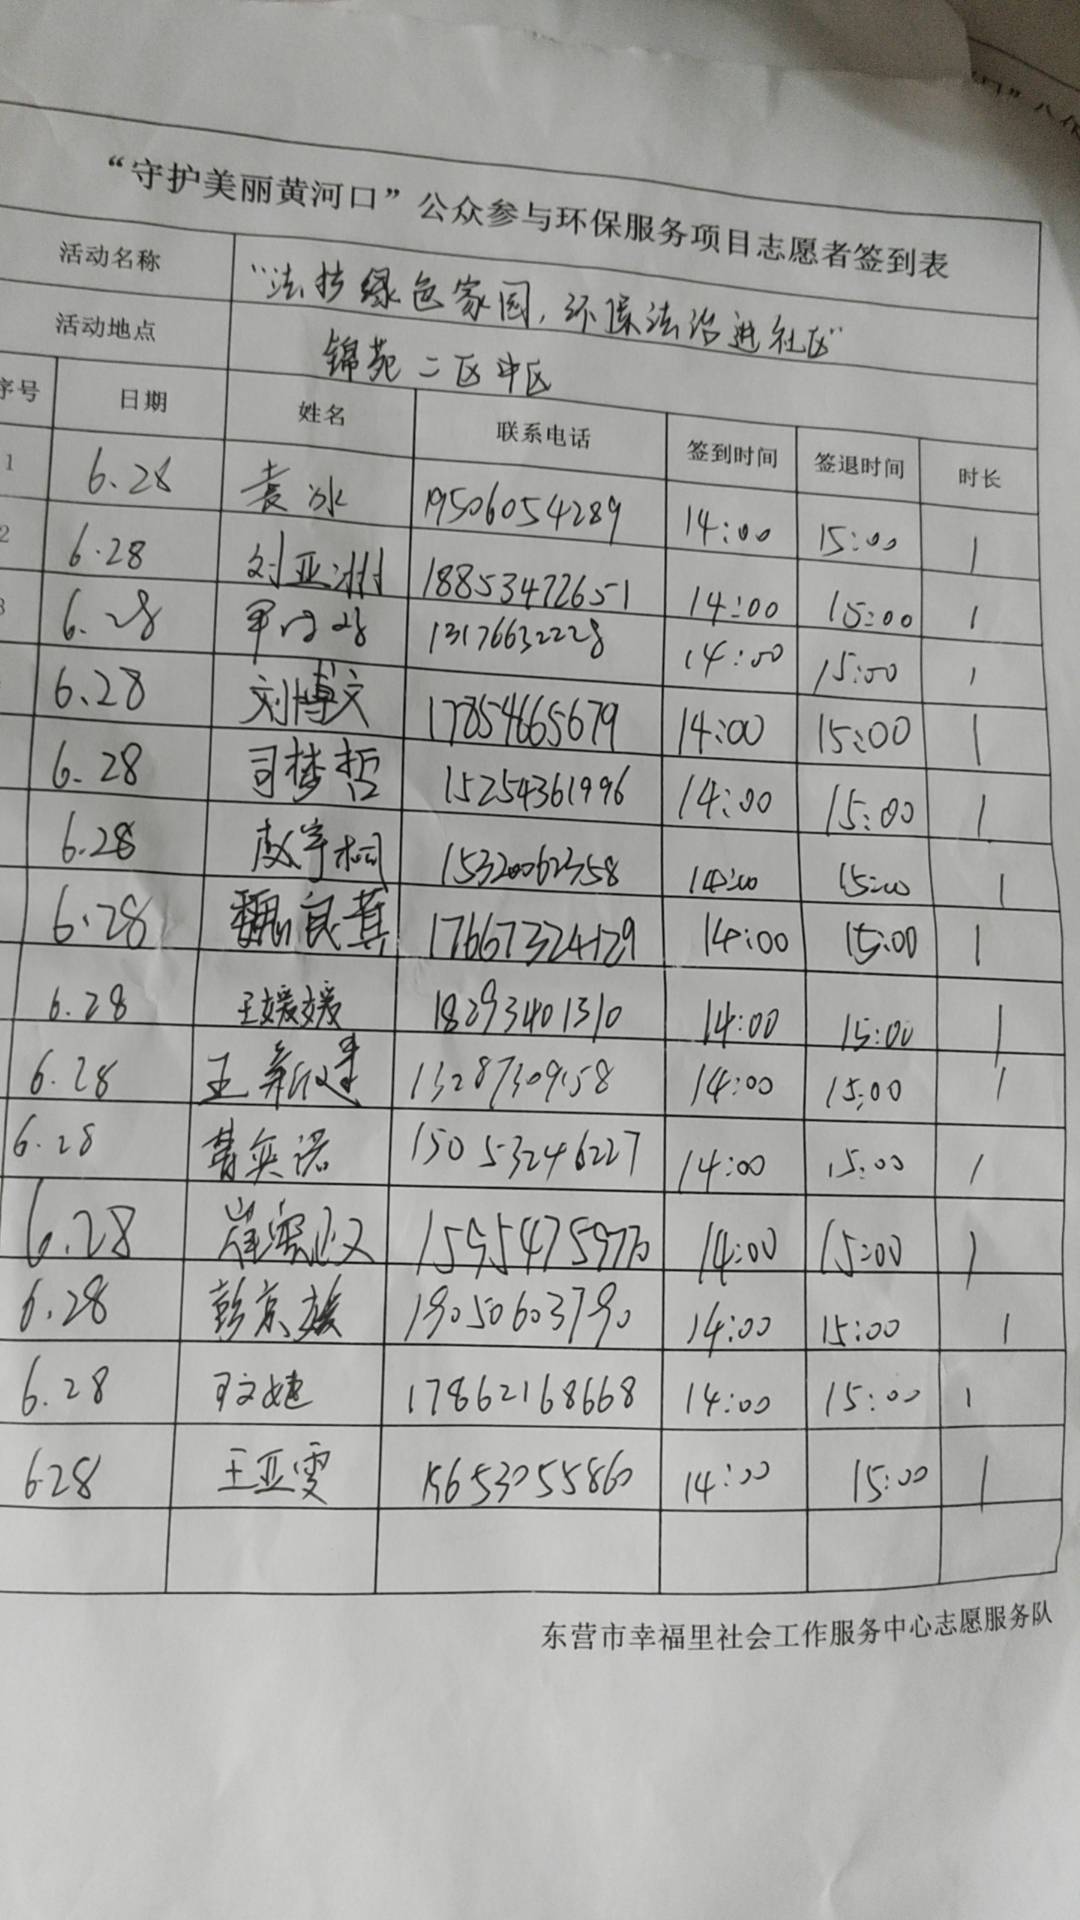 “守护美丽黄河口”公众参与环保服务项目志愿者签到表
活动名称 “法护绿色家园,环保法治进社区”
活动地点 锦苑二区中区
序号 日期 姓名 联系电话 签到时间 签退时间 时长
1 6.28 袁冰 19506054289 14:00 15:00 1
2 6.28 刘亚洲 18853472651 14:00 15:00 1
3 6.28 13176632228 14:00 15:00 1
6.28 刘博文 17854665679 14:00 15:00 1
6.28 司梦哲 15254361996 14:00 15:00 1
6.28 赵宇桐 15320062358 14:00 15:00 1
6.28 魏良真 17667324129 14:00 15:00 1
6.28 王媛媛 18293401310 14:00 15:00 1
6.28 王新健 13287309158 14:00 15:00 1
6.28 15053246227 14:00 15:00 1
6.28 14:00 15:00 1
6.28 彭京媛 19050603790 14:00 15:00 1
6.28 王文婕 17862168668 14:00 15:00 1
6.28 王亚雯 15653055860 14:00 15:00 1
东营市幸福里社会工作服务中心志愿服务队